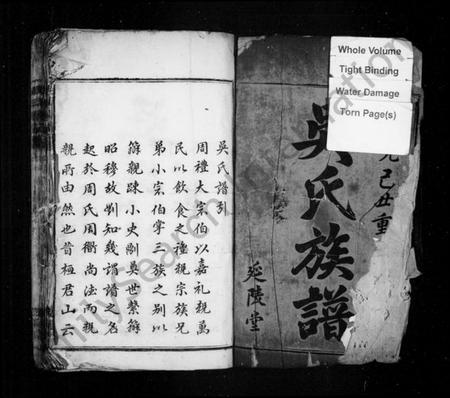 Whole Volume
Tight Binding
Water Damage
Torn Page(s)
己丑重
吳氏族譜
延陵堂
吳氏譜引
周禮大宗伯以嘉禮親萬
民以飲食之禮親宗族兄
弟小宗伯掌三族之別以
辨親疎小史奠世繫辨
昭穆故剘知幾謂譜之名
起於周氏周衢尚法而親
親所由然也昔桓君山云